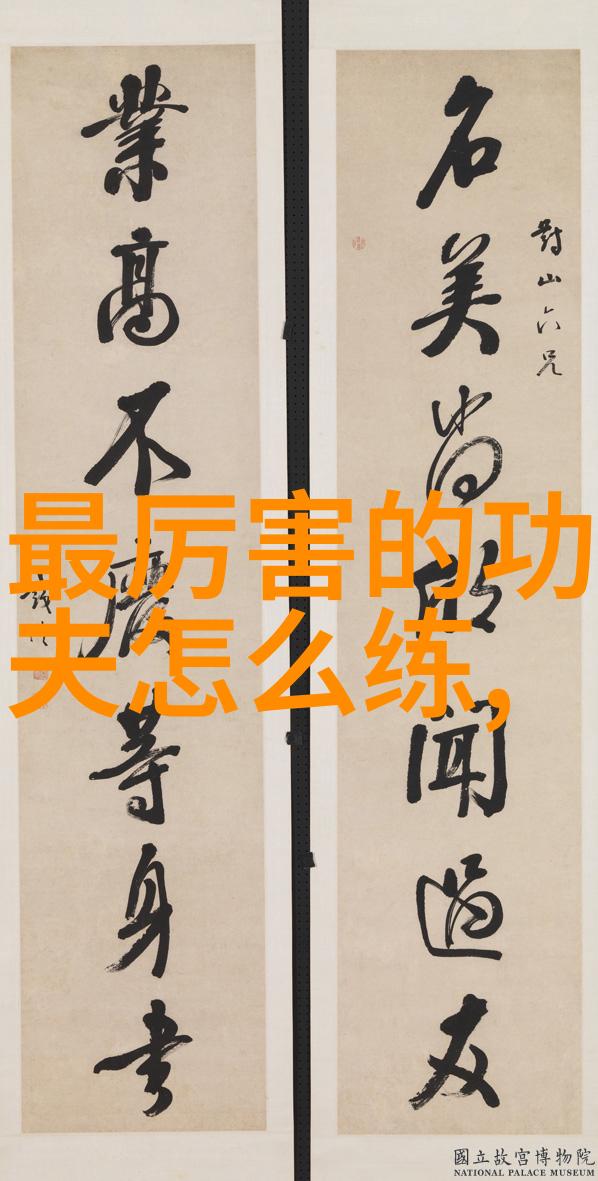 對山六兄
名美尚欣聞過友
業高不廢等身書
最厉害的功
夫怎么练,
國立故宮博物院
NATIONAL PALACE MUSEUM